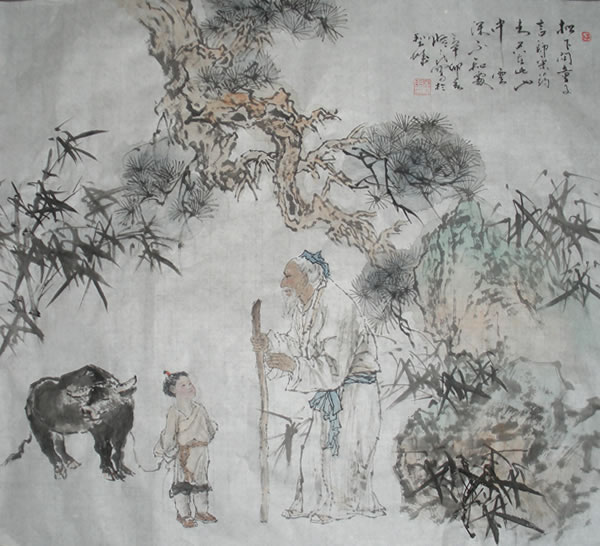 松下问童子
言师采药
去只在此山
中云
深不知处
辛卯春